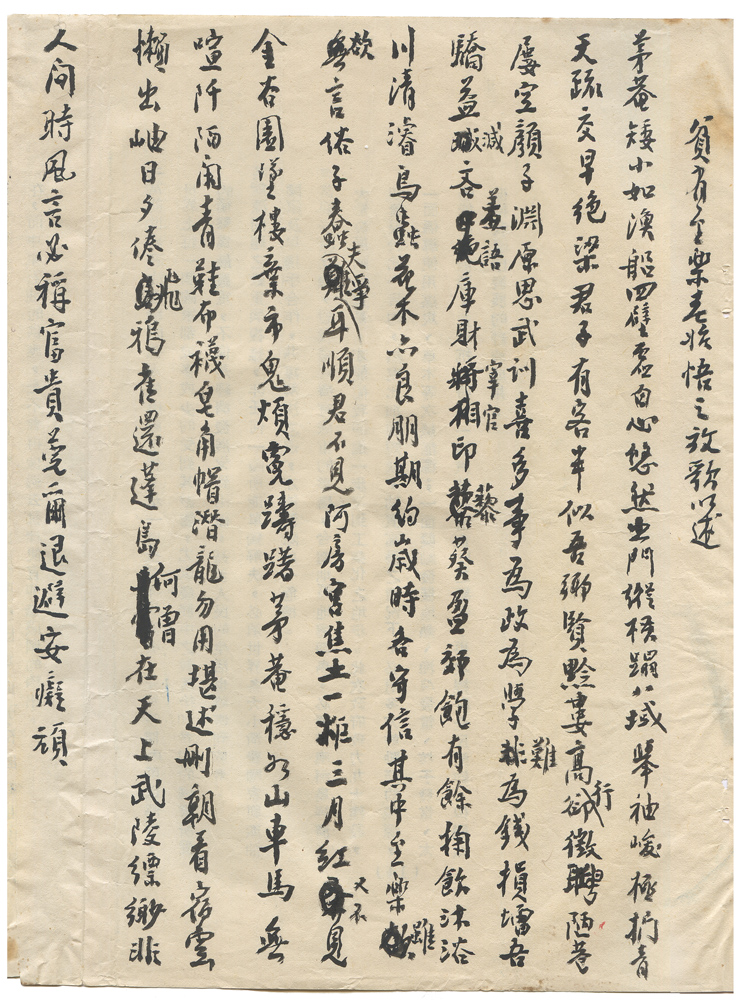 貧有至樂老始悟之放歌以述
茅菴矮小如漁船四壁虛白心悠然出門縱橫躡八域舉袖峻極捫青
天疏交早絕梁君子有客半似吾鄉賢黔婁高行徵聘陋巷
屢空顏子淵原思武訓喜多事為政為學難為錢損墦吾
驕益減吝羞語庫財宰官印藜葵盈郭飽有餘掬飲沐浴
川清濬鳥蟲花木亦良朋期約歲時吾守信其中至樂雖
欲言俗子蠢夫寧耳順君不見阿房宮焦土一炬三月紅又不見
金谷園墜樓棄市鬼煩冤躊躇茅菴穩如山車馬無
喧阡陌閑青鞋布襪皂角帽潛龍勿用堪述刪朝看宿雲
懶出岫日夕倦飛鴉雀還蓬島何曾在天上武陵縹緲非
人間時風言必稱富貴莞爾退避安癡頑